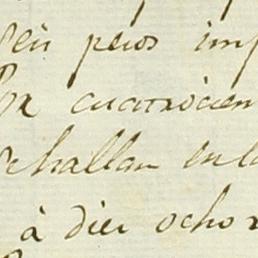 seis pesos imp
Por cuatrocien
se hallan en la
à diez ocho r